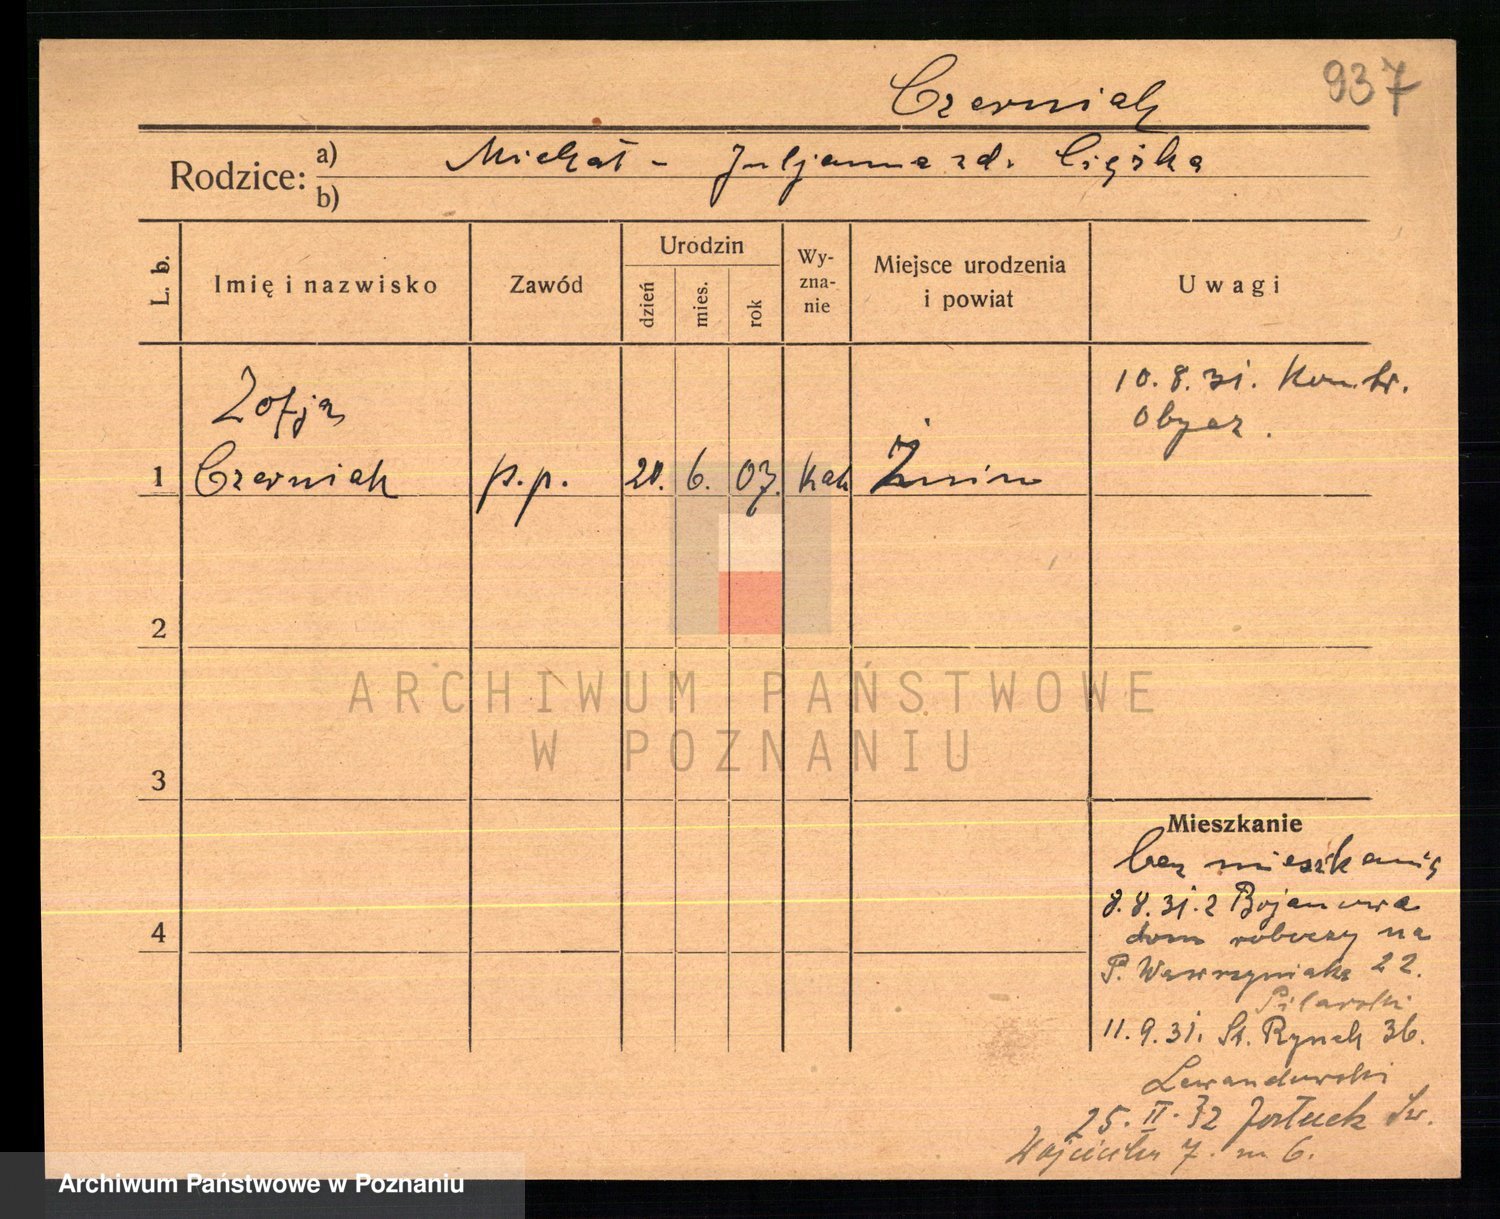 Czerniak
937
Rodzice: a) Michał - Juljanna zd. Ciężka
b)
L. b.
Imię i nazwisko
Zawód
Urodzin
dzień
mies.
rok
Wy-
zna-
nie
Miejsce urodzenia
i powiat
Uwagi
10.8.31. Kontr.
Obycz.
Zofja
1 Czerniak p.p. 20. 6. 07. kat Żnin
2
3
4
ARCHIWUM PAŃSTWOWE
W POZNANIU
Mieszkanie
bez mieszkania
8.8.31. z Bojanowa
dom roboczy na
P. Wawrzyniaka 22.
Pilarski
11.9.31. St. Rynek 36.
Lewandowski
25. II. 32 Św.
Wojciecha 7. m 6.
Archiwum Państwowe w Poznaniu